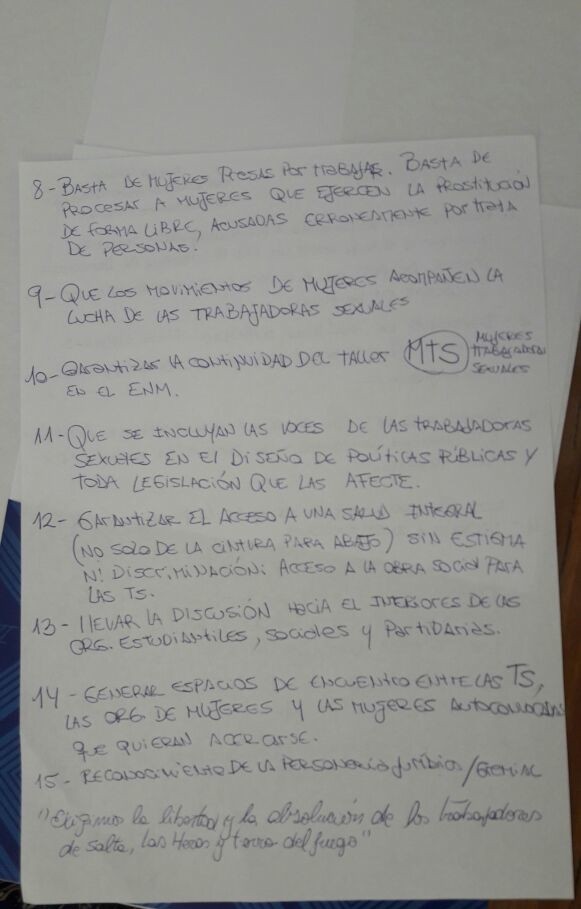 8- BASTA DE MUJERES PRESAS POR TRABAJAR. BASTA DE
PROCESAR A MUJERES QUE EJERCEN LA PROSTITUCIÓN
DE FORMA LIBRE, ACUSADAS ERRONEAMENTE POR TRATA
DE PERSONAS.
9- QUE LOS MOVIMIENTOS DE MUJERES ACOMPAÑEN LA
LUCHA DE LAS TRABAJADORAS SEXUALES
10- GARANTIZAR LA CONTINUIDAD DEL TALLER MTS MUJERES
TRABAJADORAS
SEXUALES
EN EL ENM.
11- QUE SE INCLUYAN LAS VOCES DE LAS TRABAJADORAS
SEXUALES EN EL DISEÑO DE POLÍTICAS PÚBLICAS Y
TODA LEGISLACIÓN QUE LAS AFECTE.
12- GARANTIZAR EL ACCESO A UNA SALUD INTEGRAL
(NO SOLO DE LA CINTURA PARA ABAJO) SIN ESTIGMA
NI DISCRIMINACIÓN: ACCESO A LA OBRA SOCIAL PARA
LAS TS.
13- LLEVAR LA DISCUSIÓN HACIA EL INTERIORES DE LAS
ORG. ESTUDIANTILES, SOCIALES Y PARTIDARIAS.
14- GENERAR ESPACIOS DE ENCUENTRO ENTRE LAS TS,
LAS ORG DE MUJERES Y LAS MUJERES AUTOCONVOCADAS
QUE QUIERAN ACERCARSE.
15- RECONOCIMIENTO DE LA PERSONERÍA JURÍDICA/GREMIAL
"Exigimos la libertad y la absolución de las trabajadoras
de Salta, Las Heras y tierra del fuego"